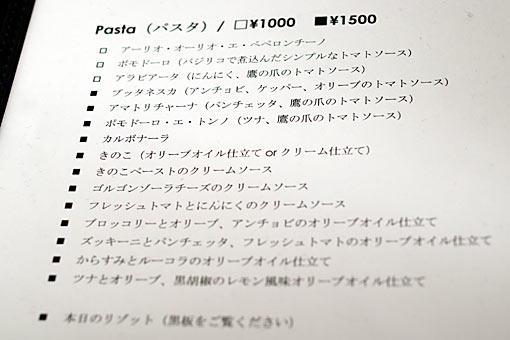 Pasta（パスタ）/ □¥1000 ■¥1500
□ アーリオ・オーリオ・エ・ペペロンチーノ
□ ポモドーロ（バジリコで煮込んだシンプルなトマトソース）
□ アラビアータ（にんにく、鷹の爪のトマトソース）
■ プッタネスカ（アンチョビ、ケッパー、オリーブのトマトソース）
■ アマトリチャーナ（パンチェッタ、鷹の爪のトマトソース）
■ ポモドーロ・エ・トンノ（ツナ、鷹の爪のトマトソース）
■ カルボナーラ
■ きのこ（オリーブオイル仕立て or クリーム仕立て）
■ きのこペーストのクリームソース
■ ゴルゴンゾーラチーズのクリームソース
■ フレッシュトマトとにんにくのクリームソース
■ ブロッコリーとオリーブ、アンチョビのオリーブオイル仕立て
■ ズッキーニとパンチェッタ、フレッシュトマトのオリーブオイル仕立て
■ からすみとルーコラのオリーブオイル仕立て
■ ツナとオリーブ、黒胡椒のレモン風味オリーブオイル仕立て
■ 本日のリゾット（黒板をご覧ください）